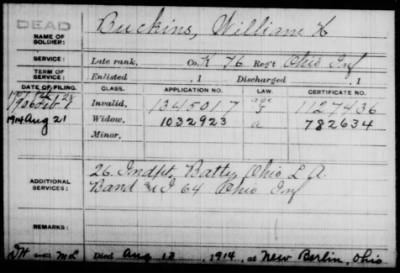 DEAD
NAME OF SOLDIER: Buckins, William H
SERVICE: Late rank, Co. K 76 Reg't Ohio Inf
TERM OF SERVICE: Enlisted , 1 Discharged , 1
DATE OF FILING. CLASS. APPLICATION NO. LAW. CERTIFICATE NO.
1906 Invalid, 1345017 1127436
1914 Aug 21 Widow, 1032923 a 782634
Minor,
ADDITIONAL SERVICES: 26 Indpt. Batty Ohio L A
Band 64 Ohio Inf
REMARKS:
Died Aug 12, 1914, at New Berlin, Ohio